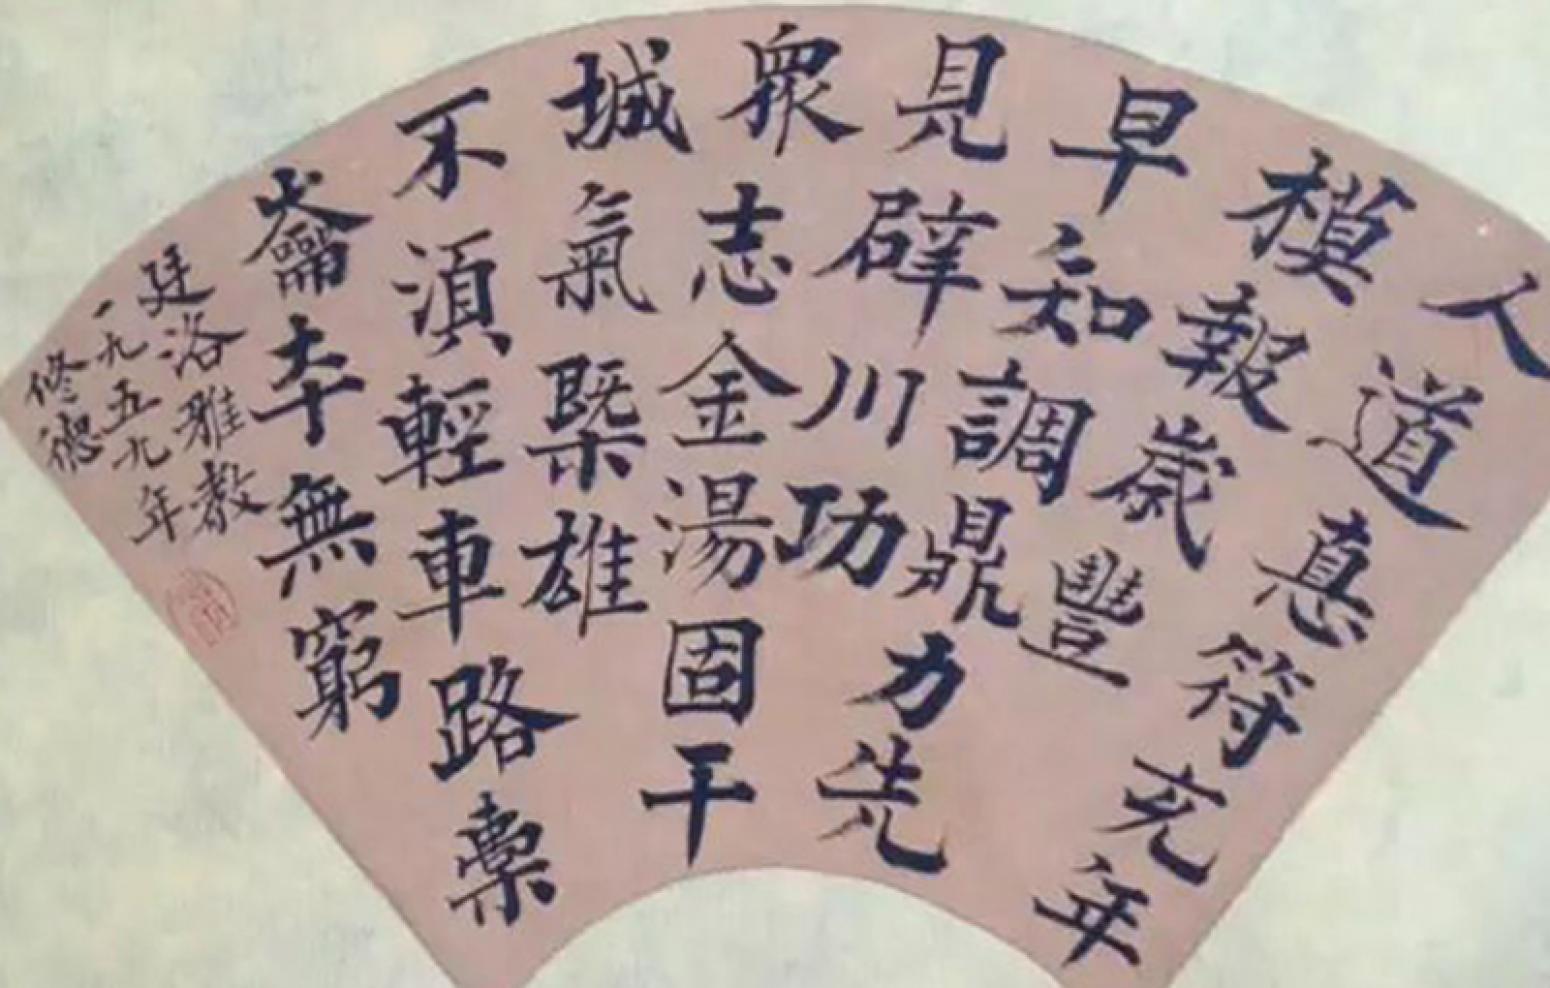 人道真符充年
模報歲豐
早知調鼎力先
見辟川功
眾志金湯固干
城氣槩雄
不須輕車路橐
龠夲無窮
廷洛雅教
一九五九年
修德